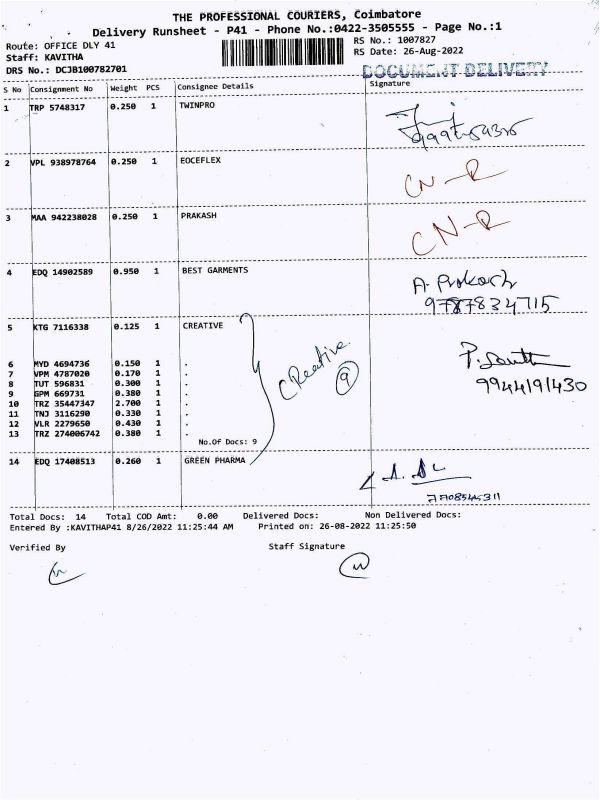 THE PROFESSIONAL COURIERS, Coimbatore
Delivery Runsheet - P41 - Phone No.:0422-3505555 - Page No.:1
Route: OFFICE DLY 41
Staff: KAVITHA
DRS No.: DCJB100782701
RS No.: 1007827
RS Date: 26-Aug-2022
DOCUMENT DELIVERY
S No Consignment No Weight PCS Consignee Details Signature
1 TRP 5748317 0.250 1 TWINPRO
2 VPL 938978764 0.250 1 EOCEFLEX CN-R
3 MAA 942238028 0.250 1 PRAKASH CN-R
4 EDQ 14902589 0.950 1 BEST GARMENTS A. Prakash
9787834715
5 KTG 7116338 0.125 1 CREATIVE
6 MYD 4694736 0.150 1 .
7 VPM 4787020 0.170 1 .
8 TUT 596831 0.300 1 .
9 GPM 669731 0.380 1 .
10 TRZ 35447347 2.700 1 .
11 TNJ 3116290 0.330 1 .
12 VLR 2279650 0.430 1 .
13 TRZ 274006742 0.380 1 .
Creative
9
9944191430
No.Of Docs: 9
14 EDQ 17408513 0.260 1 GREEN PHARMA
7708545311
Total Docs: 14 Total COD Amt: 0.00 Delivered Docs: Non Delivered Docs:
Entered By :KAVITHAP41 8/26/2022 11:25:44 AM Printed on: 26-08-2022 11:25:50
Verified By Staff Signature